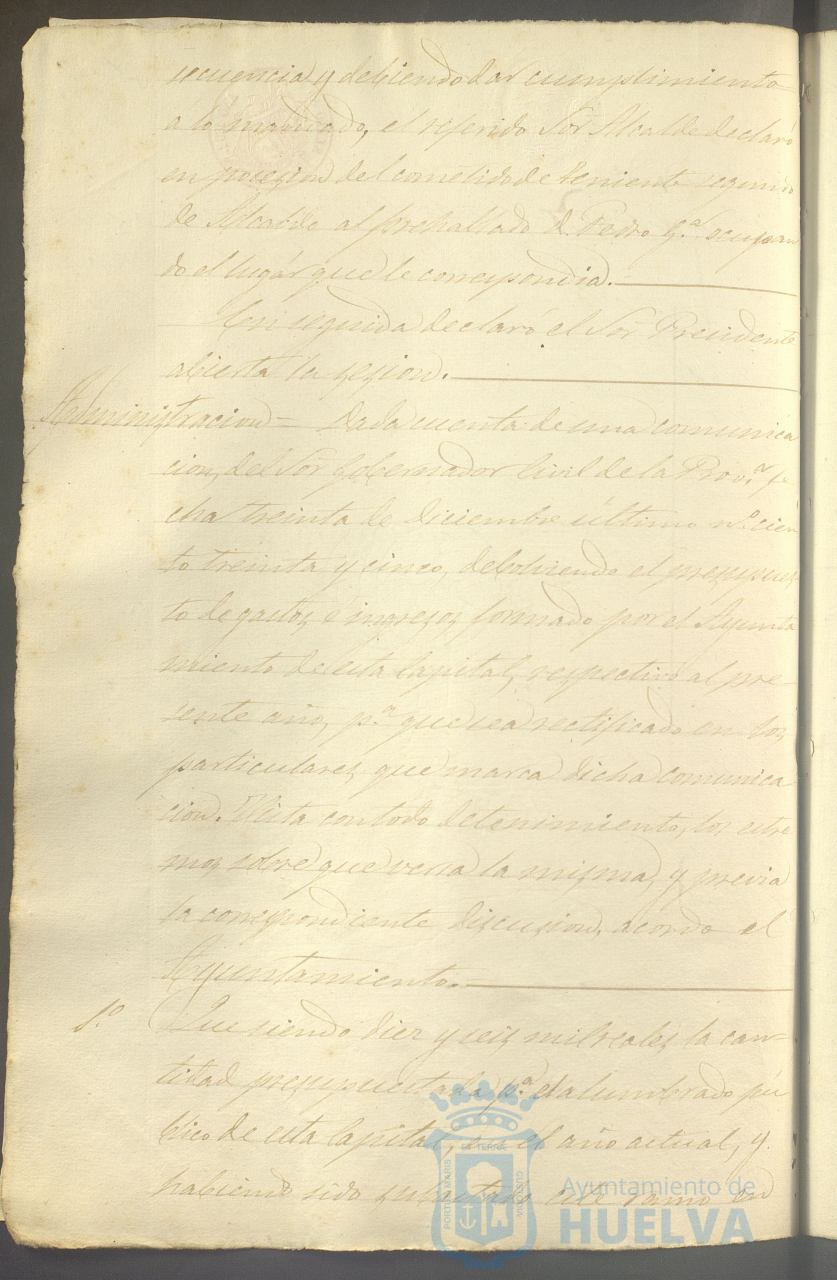 secuencia y debiendo dar cumplimiento
a lo mandado, el referido Sor. Alcalde declaró
en posesion del cometido de teniente segundo
de Alcalde al prehallado D. Pedro G.a ocupan
do el lugár que le correspondia.
En seguida declaró el Sor. Presidente
abierta la sesion.
Administracion = Dada cuenta de una comunica
cion, del Sor. Gobernador Civil de la Prov.a fe
cha treinta de Diciembre último n.o cien
to treinta y cinco, debolviendo el presupues
to de gastos, é ingresos, formado por el Ayunta
miento de esta Capital, respectivo al pre-
sente año, p.a que sea rectificado en los
particulares, que marca dicha comunica
cion. Vista con todo detenimiento, los estre
mos sobre que versa la misma, y previa
la correspondiente discusion, acordo el
Ayuntamiento.
1.o Que siendo diez y seis mil reales, la can-
tidad presupuestada p.a el alumbrado pú
blico de esta Capital, en el año actual, y
habiendo sido subastado este ramo en
PORTUS MARIS
ET TERRE
CUSTODIA
Ayuntamiento de
HUELVA